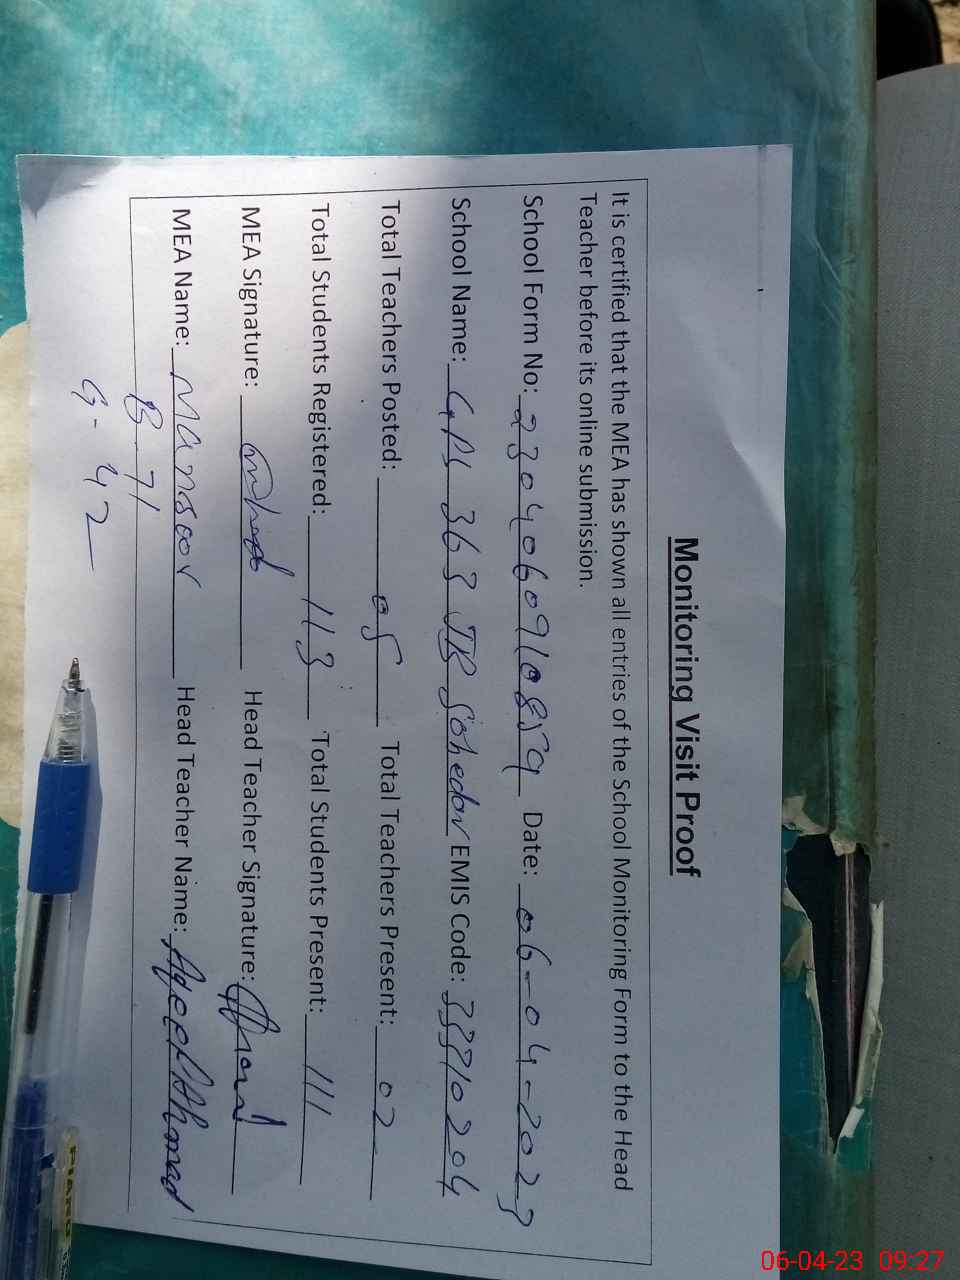 Monitoring Visit Proof
It is certified that the MEA has shown all entries of the School Monitoring Form to the Head
Teacher before its online submission.
School Form No: 2304060910859 Date: 06-04-2023
School Name: GPS 363 JB Johedar EMIS Code: 33210204
Total Teachers Posted: 05 Total Teachers Present: 02
Total Students Registered: 113 Total Students Present: 111
MEA Signature: Head Teacher Signature:
MEA Name: Mansoor Head Teacher Name: Aqeel Ahmad
B 71
G- 42
PIANO
06-04-23 09:27